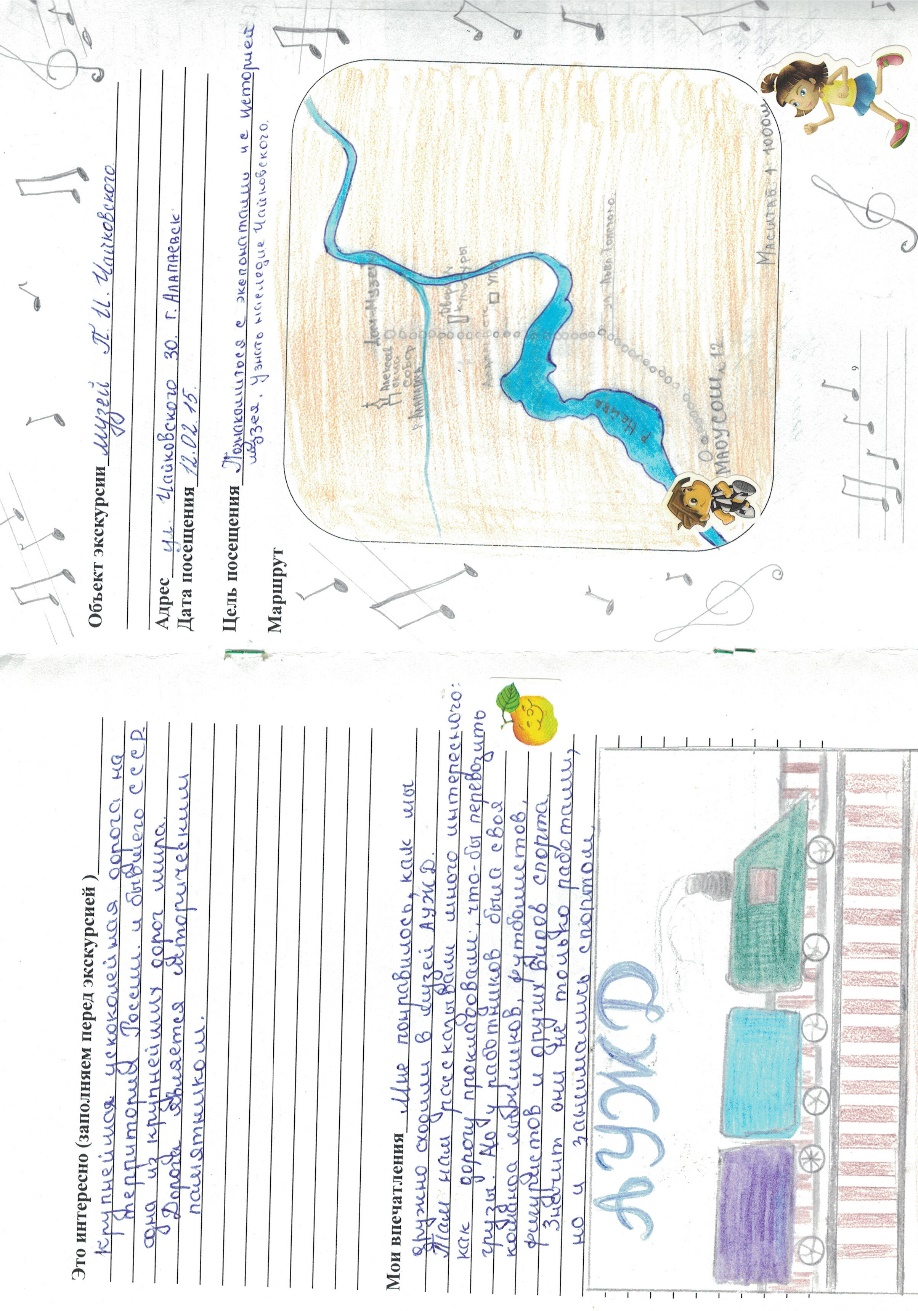 Это интересно (заполняем перед экскурсией )
Крупнейшая узкоколейная дорога на
территории России и бывшего СССР
одна из крупнейших дорог мира.
Дорога является историческим
памятником.
Мои впечатления Мне понравилось, как мы
дружно сходили в музей АУЖД.
Там нам рассказывали много интересного:
как дорогу прокладовали, что-бы перевозить
грузы. Но у работников была своя
команда лыжников, футболистов,
фигуристов и других видов спорта.
Значит они не только работали,
но и занимались спортом.
АУЖД
Объект экскурсии музей П. И. Чайковского
Адрес ул. Чайковского 30. г. Алапаевск
Дата посещения 12.02 15.
Цель посещения Познакомиться с экспонатами и с историей
музея. Узнать наследие Чайковского.
Маршрут
Дом-Музей
Алексеев
ский
собор
р. Алапаиха
Дворец
культуры
УПК
ул. Льва Толстого.
р. Нейва
МАОУСОШ №12
Масштаб 1: 1000м